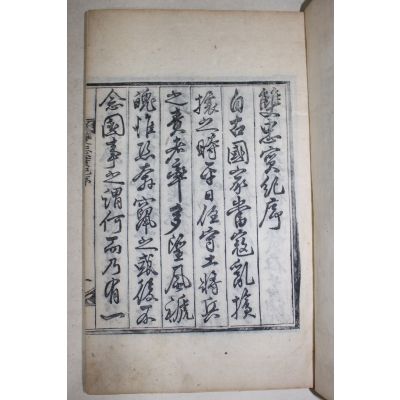 雙忠實紀序
自古國家當寇亂搶
攘之時平日任守土將兵
之責者率多望風褫
魄惟恐奔竄之或後不
念國事之謂何而乃有一